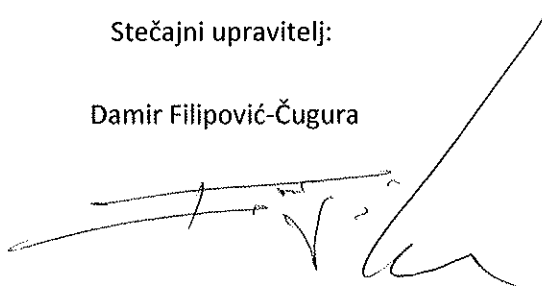 Stečajni upravitelj:
Damir Filipović-Čugura